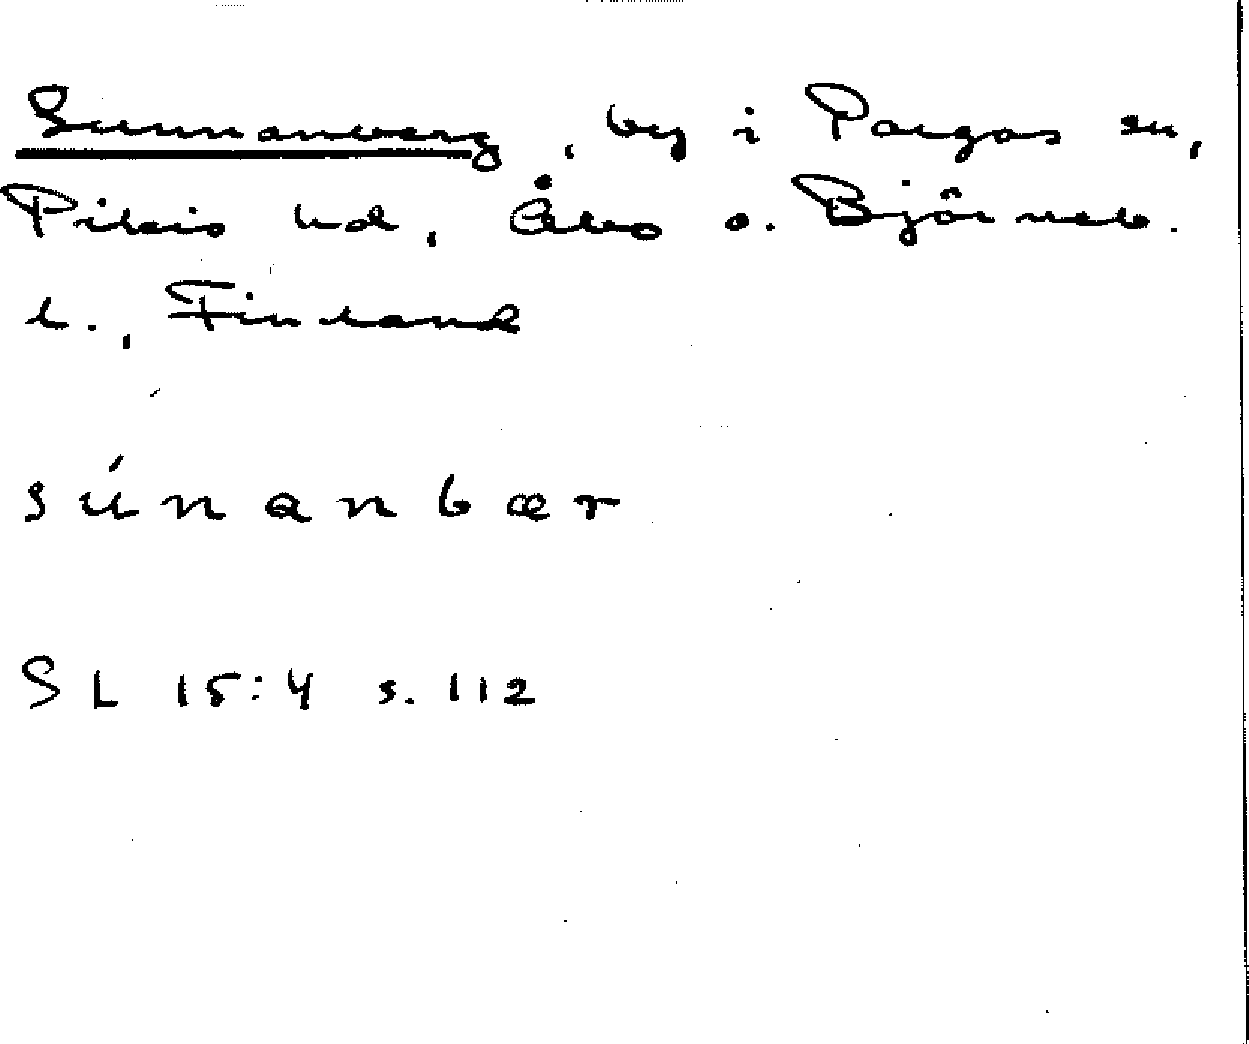 Sunnanberg, by i Pargas sn,
Pikis hd, Åbo o. Björneb.
l., Finland
súnanbær
SL 15:4 s. 112